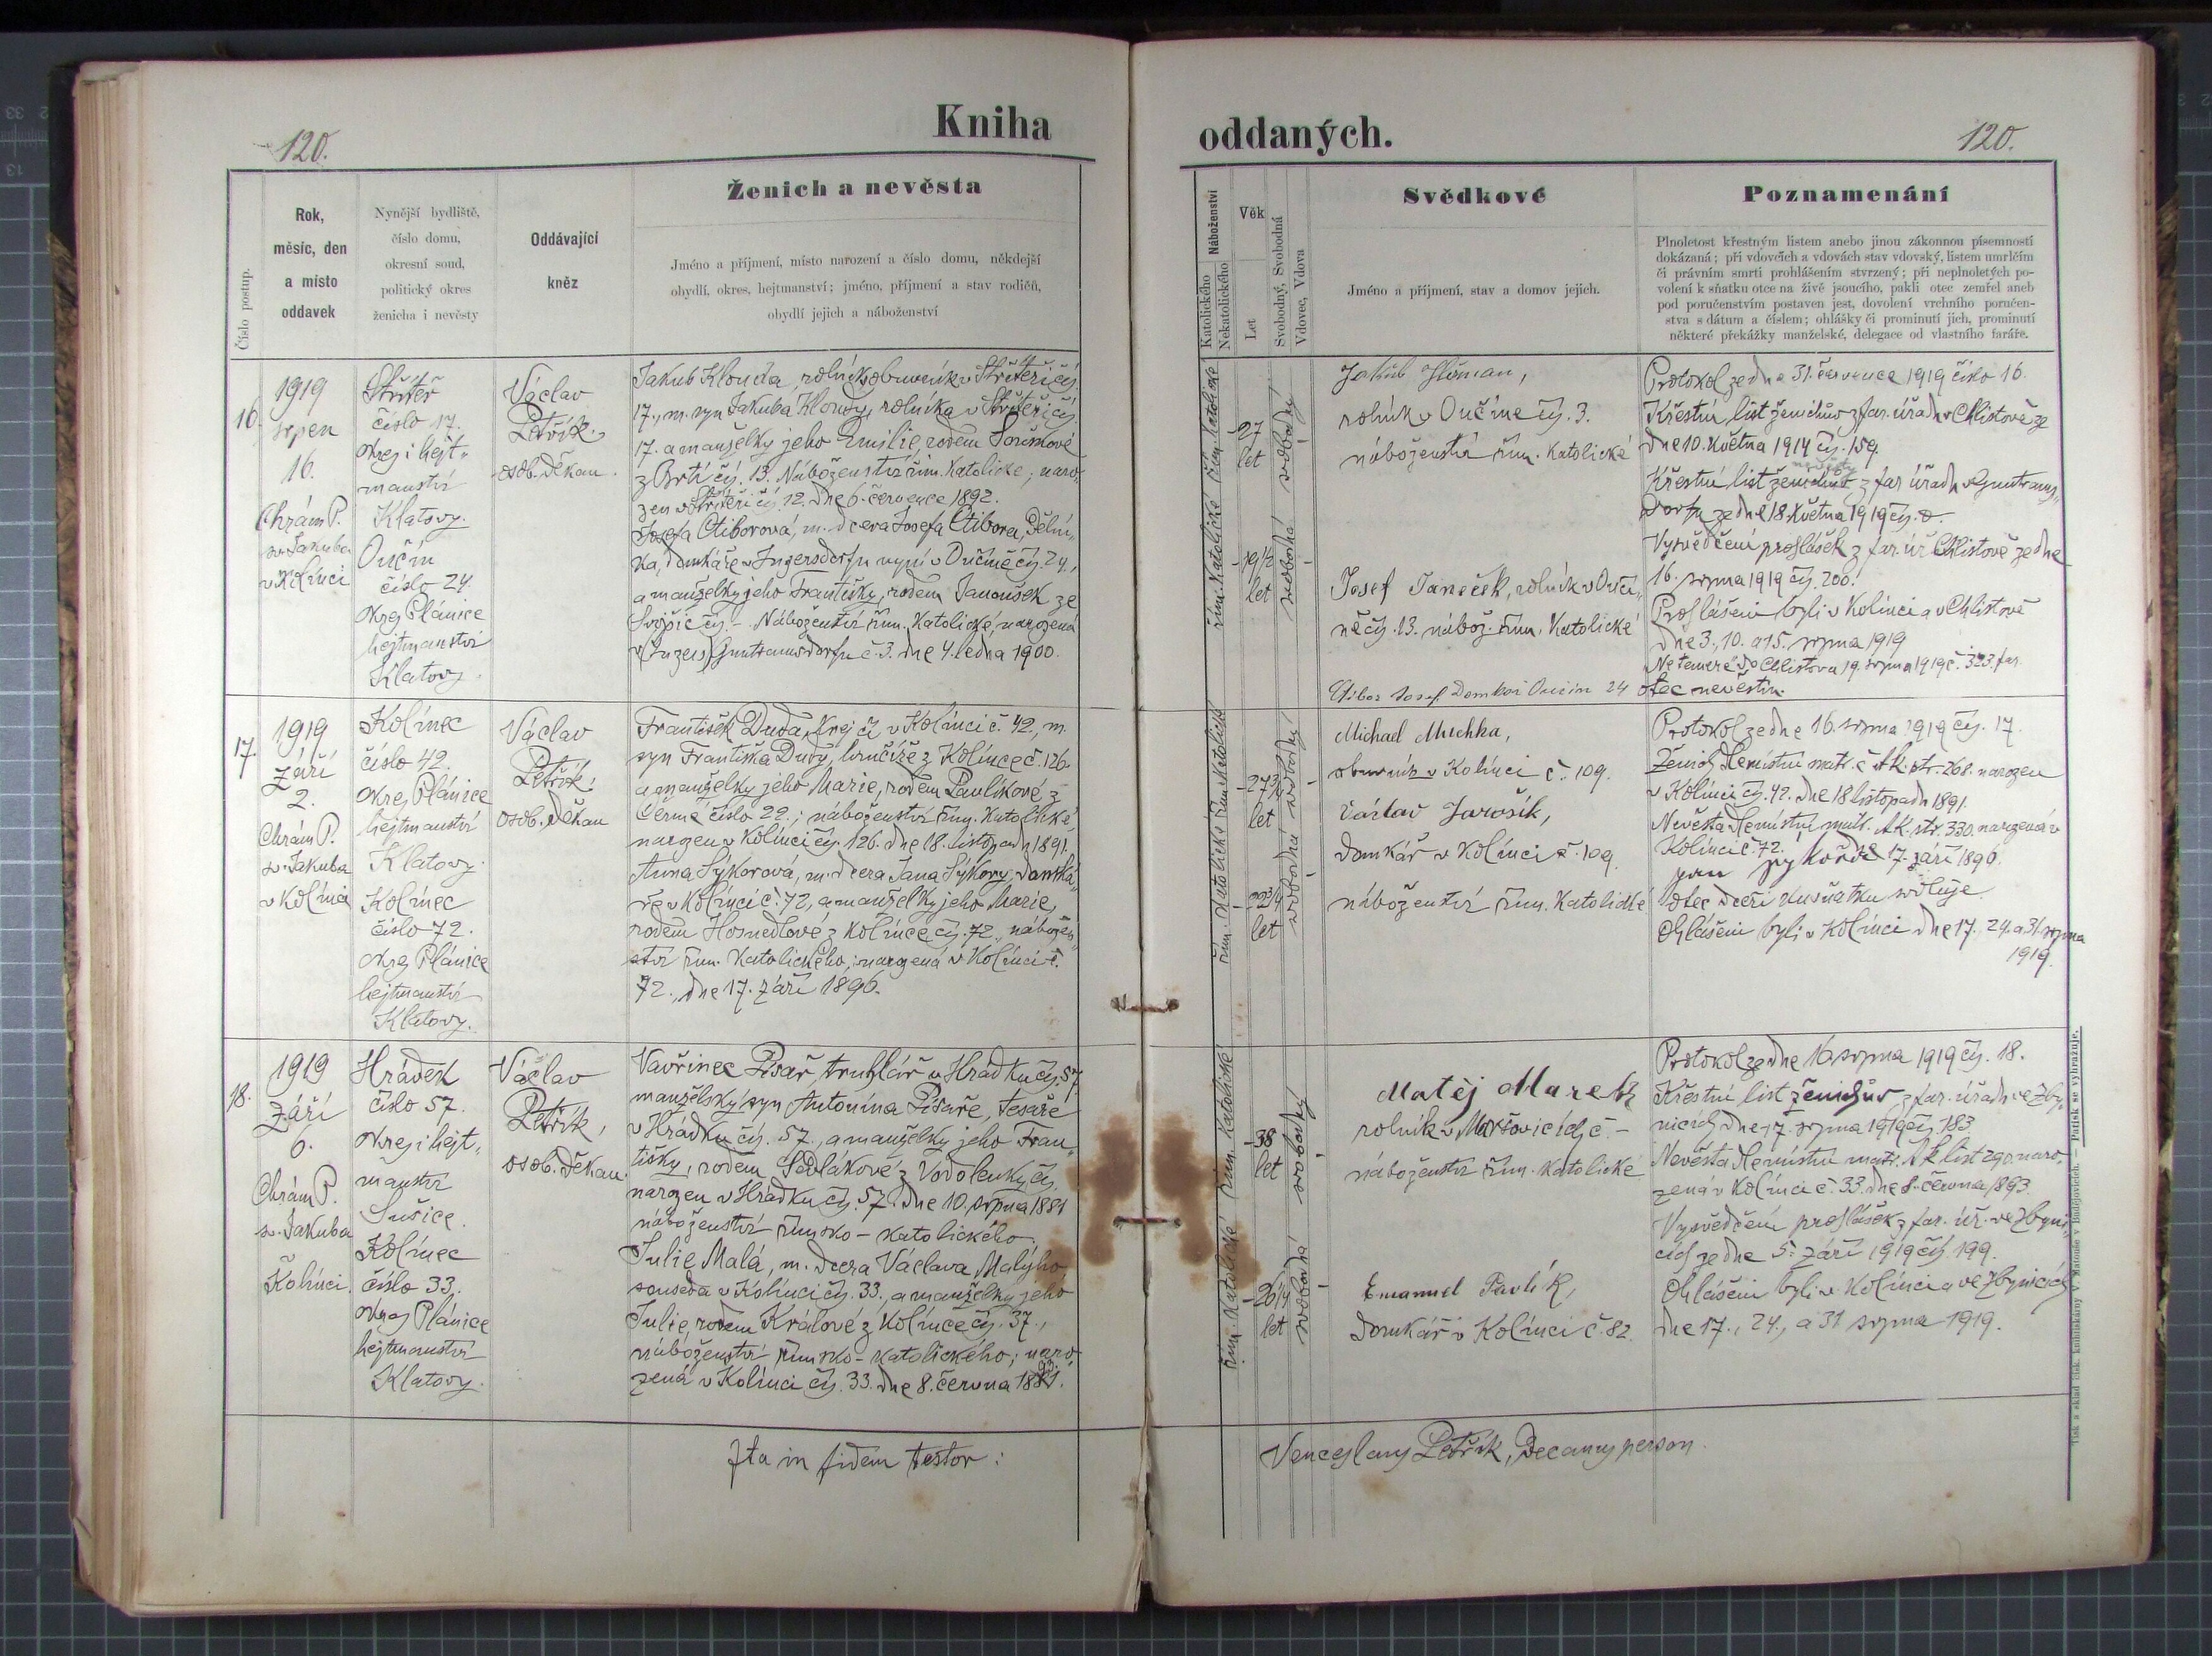 Kniha
oddaných.
120.
120.
Číslo postup.
Rok,
měsíc, den
a místo
oddavek
Nynější bydliště,
číslo domu,
okresní soud,
politický okres
ženicha i nevěsty
Oddávající
kněz
Ženich a nevěsta
Jméno a příjmení, místo narození a číslo domu, někdejší
obydlí, okres, hejtmanství; jméno, příjmení a stav rodičů,
obydlí jejich a náboženství
Náboženství
Katolického
Nekatolického
Věk
Let
Svobodný, Svobodná
Vdovec, Vdova
Svědkové
Jméno a příjmení, stav a domov jejich.
Poznamenání
Plnoletost křestným listem anebo jinou zákonnou písemností
dokázaná; při vdovcích a vdovách stav vdovský, listem úmrlčím
či právním smrti prohlášením stvrzený; při neplnoletých po-
volení k sňatku otce na živě jsoucího, pakli otec zemřel aneb
pod poručenstvím postaven jest, dovolení vrchního poručen-
stva s dátum a číslem; ohlášky či prominutí jich, prominutí
některé překážky manželské, delegace od vlastního faráře.
16.
1919
srpen
16.
Chrám P.
sv. Jakuba
v Kolinci
číslo 17.
okres i hejt-
manství
Klatovy.
Oučín
číslo 24.
okres Plánice
hejtmanství
Klatovy.
Václav
Petřík,
osob. děkan.
Jakub Klouda, rolník
17., m. syn Jakuba Kloudy, rolníka
17. a manželky jeho Emilie, rodem
z Brtí čís. 13. Náboženství řím. katolické; naro-
zen čís. 12. dne 6. července 1892.
Josefa Ctiborová, m. dcera Josefa Ctibora, dělní-
ka, domkáře v Inzersdorfu nyní v Oučíně čís. 24.,
a manželky jeho Františky, rodem Janoušek ze
Svrčic čís. - Náboženství řím. katolické, narozená
Guntramsdorfu č. 3. dne 4. ledna 1900.
řím. katolické
řím. katolické
27
let
svobodný
19 1/2
let
svobodná
Jakub
rolník v Oučíně čís. 3.
náboženství řím. katolické
Josef Janeček, rolník v Oučí-
ně čís. 13. nábož. řím. katolické
Ctibor Josef Domkář Oučín 24 otec nevěstin
Protokol ze dne 31. července 1919 číslo 16.
Křestní list ženichův z far. úřadu v Chlistově ze
dne 10. května 1914 čís. 159.
Křestní list nevěsty z far. úřadu v Guntrams-
dorfu ze dne 18. května 1919 čís.
Vysvědčení prohlášek z far. úř. Chlistově ze dne
16. srpna 1919 čís. 200.
Prohlášeni byli v Kolinci a v Chlistově
dne 3., 10. a 15. srpna 1919
Ne temere do Chlistova 19. srpna 1919 č. 323. far.
17.
1919
září
2.
Chrám P.
sv. Jakuba
v Kolinci
Kolinec
číslo 42.
okres Plánice
hejtmanství
Klatovy.
Kolinec
číslo 72.
okres Plánice
hejtmanství
Klatovy.
Václav
Petřík,
osob. děkan
František Duda, krejčí v Kolinci č. 42., m.
syn Františka Dudy, hrnčíře z Kolince č. 126.
a manželky jeho Marie, rodem Pavlíkové z
Černé číslo 22.; náboženství řím. katolické,
narozen v Kolinci čís. 126. dne 18. listopadu 1891.
Anna Sýkorová, m. dcera Jana Sýkory, domká-
ře v Kolinci č. 72, a manželky jeho Marie,
rodem Hosnedlové z Kolince čís. 72., nábožen-
ství řím. katolického; narozená v Kolinci č.
72., dne 17. září 1896.
řím. katolické
řím. katolické
27 3/4
let
svobodný
22 3/4
let
svobodná
Michael Muchka,
obuvník v Kolinci č. 109.
Václav Jarošík,
domkář v Kolinci č. 109.
náboženství řím. katolické
Protokol ze dne 16. srpna 1919 čís. 17.
Ženich zemístní matr. č. str. 268. narozen
v Kolinci čís. 42. dne 18 listopadu 1891.
Nevěsta zemístní matr. str. 330. narozená v
Kolinci č. 72. 17. září 1896.
jan sykora
otec dceři ku sňatku svoluje.
Ohlášeni byli v Kolinci dne 17., 24. a 31. srpna
1919.
18.
1919
září
6.
Chrám P.
sv. Jakuba
Kolinci
Hrádek
číslo 57.
okres i hejt-
manství
Sušice.
Kolinec
číslo 33.
okres Plánice
hejtmanství
Klatovy.
Václav
Petřík,
osob. děkan.
Vavřinec Pisař, truhlář v Hrádku čís. 57
manželský syn Antonína Pisaře, tesaře
v Hrádku čís. 57., a manželky jeho Fran-
tišky, rodem Sedlákové z Vodolenky čís.
narozen v Hrádku čís. 57. dne 10. srpna 1881
náboženství římsko-katolického.
Julie Malá, m. dcera Václava Malýho
souseda v Kolinci čís. 33., a manželky jeho
Julie, rodem Králové z Kolince čís. 37.,
náboženství římsko-katolického; naro-
zená v Kolinci čís. 33. dne 8. června 1893.
řím. katolické
řím. katolické
38
let
svobodný
26 1/4
let
svobodná
Matěj Mareš
rolník v Maršovicích č. -
náboženství řím. katolické
Emanuel Pavlík,
domkář v Kolinci č. 82.
Protokol ze dne 16 srpna 1919 čís. 18.
Křestní list ženichův z far. úřadu ve Zby-
nicích dne 17. srpna 1919 čís. 183.
Nevěsta zemístní matr. list 290. naro-
zená v Kolinci č. 33. dne 8. června 1893.
Vysvědčení prohlášek z far. úř. ve Zbyni-
cích ze dne 5. září 1919 čís. 199.
Ohlášeni byli v Kolinci a ve Zbynicích
dne 17., 24., a 31 srpna 1919.
Ita in fidem testor:
Venceslaus Petřík, Decanus person.
Tisk a sklad čísk. knihtiskárny V. Matouše v Budějovicích. — Patisk se vyhražuje.